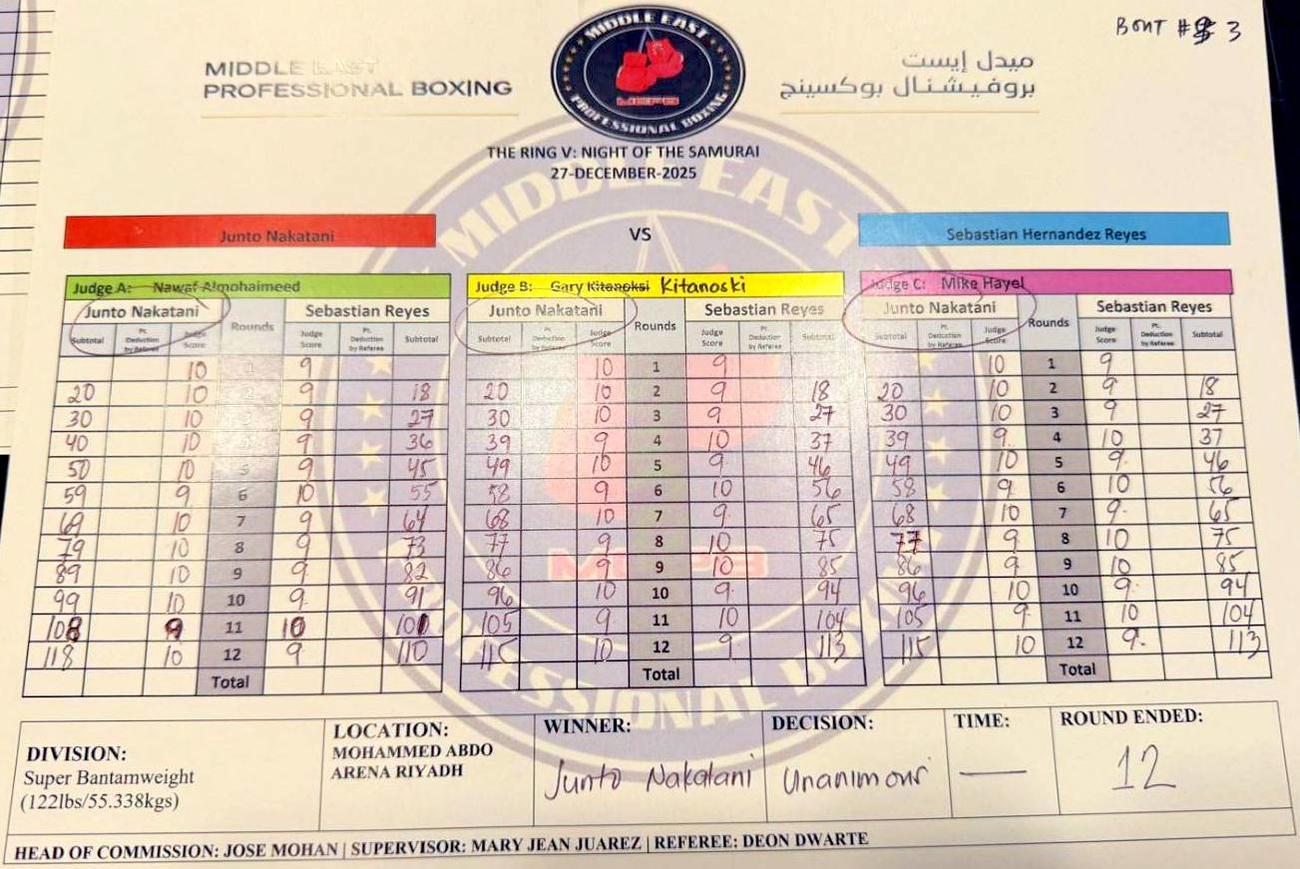 BOUT # 3
MIDDLE EAST
PROFESSIONAL BOXING
ميدل إيست
بروفيشنال بوكسينج
MIDDLE EAST
MEPB
PROFESSIONAL BOXING
THE RING V: NIGHT OF THE SAMURAI
27-DECEMBER-2025
Junto Nakatani VS Sebastian Hernandez Reyes
Judge A: Nawaf Almohaimeed
Junto Nakatani Sebastian Reyes
Subtotal Pt. Deduction by Referee Judge Score Rounds Judge Score Pt. Deduction by Referee Subtotal
10 1 9
20 10 2 9 18
30 10 3 9 27
40 10 9 36
50 10 5 9 45
59 9 6 10 55
69 10 7 9 64
79 10 8 9 73
89 10 9 9 82
99 10 10 9 91
108 9 11 10 101
118 10 12 9 110
Total
Judge B: Gary Kitanoksi Kitanoski
Junto Nakatani Sebastian Reyes
Subtotal Pt. Deduction by Referee Judge Score Rounds Judge Score Pt. Deduction by Referee Subtotal
10 1 9
20 10 2 9 18
30 10 3 9 27
39 9 4 10 37
49 10 5 9 46
58 9 6 10 56
68 10 7 9 65
77 9 8 10 75
86 9 9 10 85
96 10 10 9 94
105 9 11 10 104
115 10 12 9 113
Total
Judge C: Mike Hayel
Junto Nakatani Sebastian Reyes
Subtotal Pt. Deduction by Referee Judge Score Rounds Judge Score Pt. Deduction by Referee Subtotal
10 1 9
20 10 2 9 18
30 10 3 9 27
39 9 4 10 37
49 10 5 9 46
58 9 6 10 56
68 10 7 9 65
77 9 8 10 75
86 9 9 10 85
96 10 10 9 94
105 9 11 10 104
115 10 12 9 113
Total
DIVISION:
Super Bantamweight
(122lbs/55.338kgs)
LOCATION:
MOHAMMED ABDO
ARENA RIYADH
WINNER:
Junto Nakatani
DECISION:
Unanimous
TIME:
—
ROUND ENDED:
12
HEAD OF COMMISSION: JOSE MOHAN | SUPERVISOR: MARY JEAN JUAREZ | REFEREE: DEON DWARTE